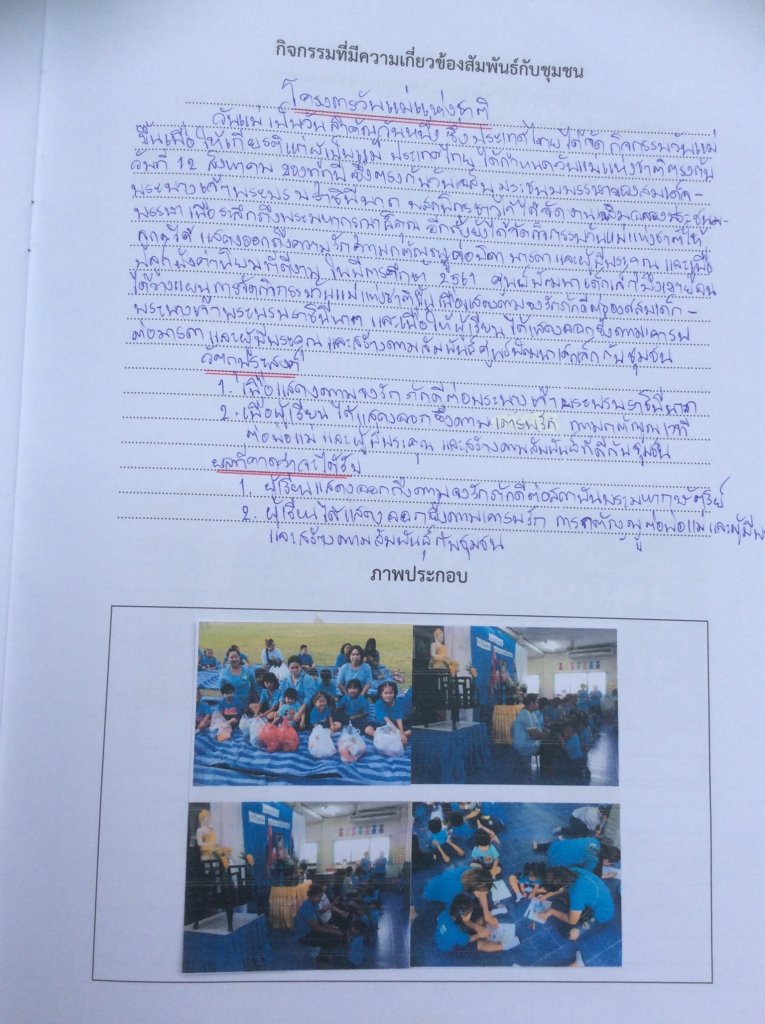 กิจกรรมที่มีความเกี่ยวข้องสัมพันธ์กับชุมชน
โครงการวันแม่แห่งชาติ
วันแม่ เป็นวันสำคัญวันหนึ่ง ซึ่งประเทศไทยได้จัดกิจกรรมวันแม่
ขึ้นเพื่อให้เกียรติแก่ผู้เป็นแม่ ประเทศไทยได้กำหนดวันแม่แห่งชาติตรงกับ
วันที่ 12 สิงหาคม ของทุกปี ซึ่งตรงกับวันเฉลิมพระชนมพรรษาของสมเด็จ-
พระนางเจ้าพระบรมราชินีนาถ พสกนิกรชาวได้จัดงานเฉลิมฉลองพระชนม-
พรรษา เพื่อระลึกถึงพระมหากรุณาธิคุณ อีกทั้งยังได้จัดกิจกรรมวันแม่แห่งชาติให้
ลูกๆได้ แสดงออกถึงความรักความกตัญญูต่อบิดา มารดาและผู้มีพระคุณ และผู้ซึ่ง
ปลูกฝังค่านิยมที่ดีงาม ในปีการศึกษา 2561 ศูนย์พัฒนาเด็กเล็ก
ได้วางแผนการจัดกิจกรรมวันแม่แห่งชาติขึ้น เพื่อแสดงความจงรักภักดีต่อองค์สมเด็จ-
พระนางเจ้าพระบรมราชินีนาถ และเพื่อให้ผู้เรียนได้แสดงออกซึ่งความเคารพ
ต่อมารดา และผู้มีพระคุณ และสร้างความสัมพันธ์ศูนย์พัฒนาเด็กเล็กกับชุมชน
วัตถุประสงค์
1. เพื่อแสดงความจงรักภักดีต่อพระนางเจ้าพระบรมราชินีนาถ
2. เพื่อผู้เรียนได้แสดงออกซึ่งความเคารพรัก ความกตัญญูกตเวที
ต่อพ่อแม่ และผู้มีพระคุณ และสร้างความสัมพันธ์ที่ดีกับชุมชน
ผลที่คาดว่าจะได้รับ
1. ผู้เรียนแสดงออกถึงความจงรักภักดีต่อสถาบันพระมหากษัตริย์
2. ผู้เรียนได้แสดงออกซึ่งความเคารพรัก การกตัญญูต่อพ่อแม่และผู้มีพระ
และสร้างความสัมพันธ์กับชุมชน
ภาพประกอบ